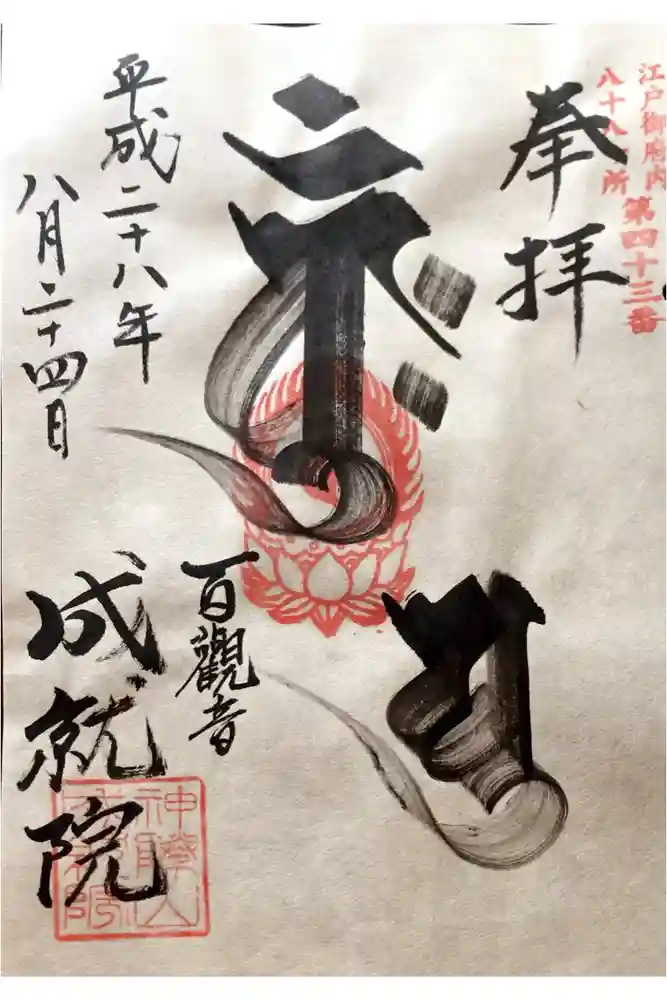 江戸御府内
八十八ヶ所
第四十三番
奉拝
百觀音
平成二十八年
八月二十四日
成就院